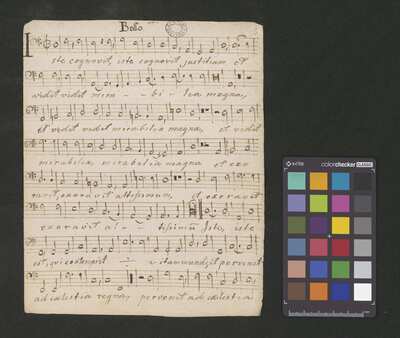 Basso
Iste cognovit, iste cognovit, justitiam et
vidit vidit mira - bi - lia magna,
et vidit vidit mirabilia magna, et vidit
mirabilia, mirabilia magna et exo
ravit, exoravit altissimum, et exoravit
exoravit al - tissimum Iste, iste
est, qui contempsit vitam mundi, et pervenit
ad cælestia regna, pervenit ad cælestia
x-rite
colorchecker CLASSIC